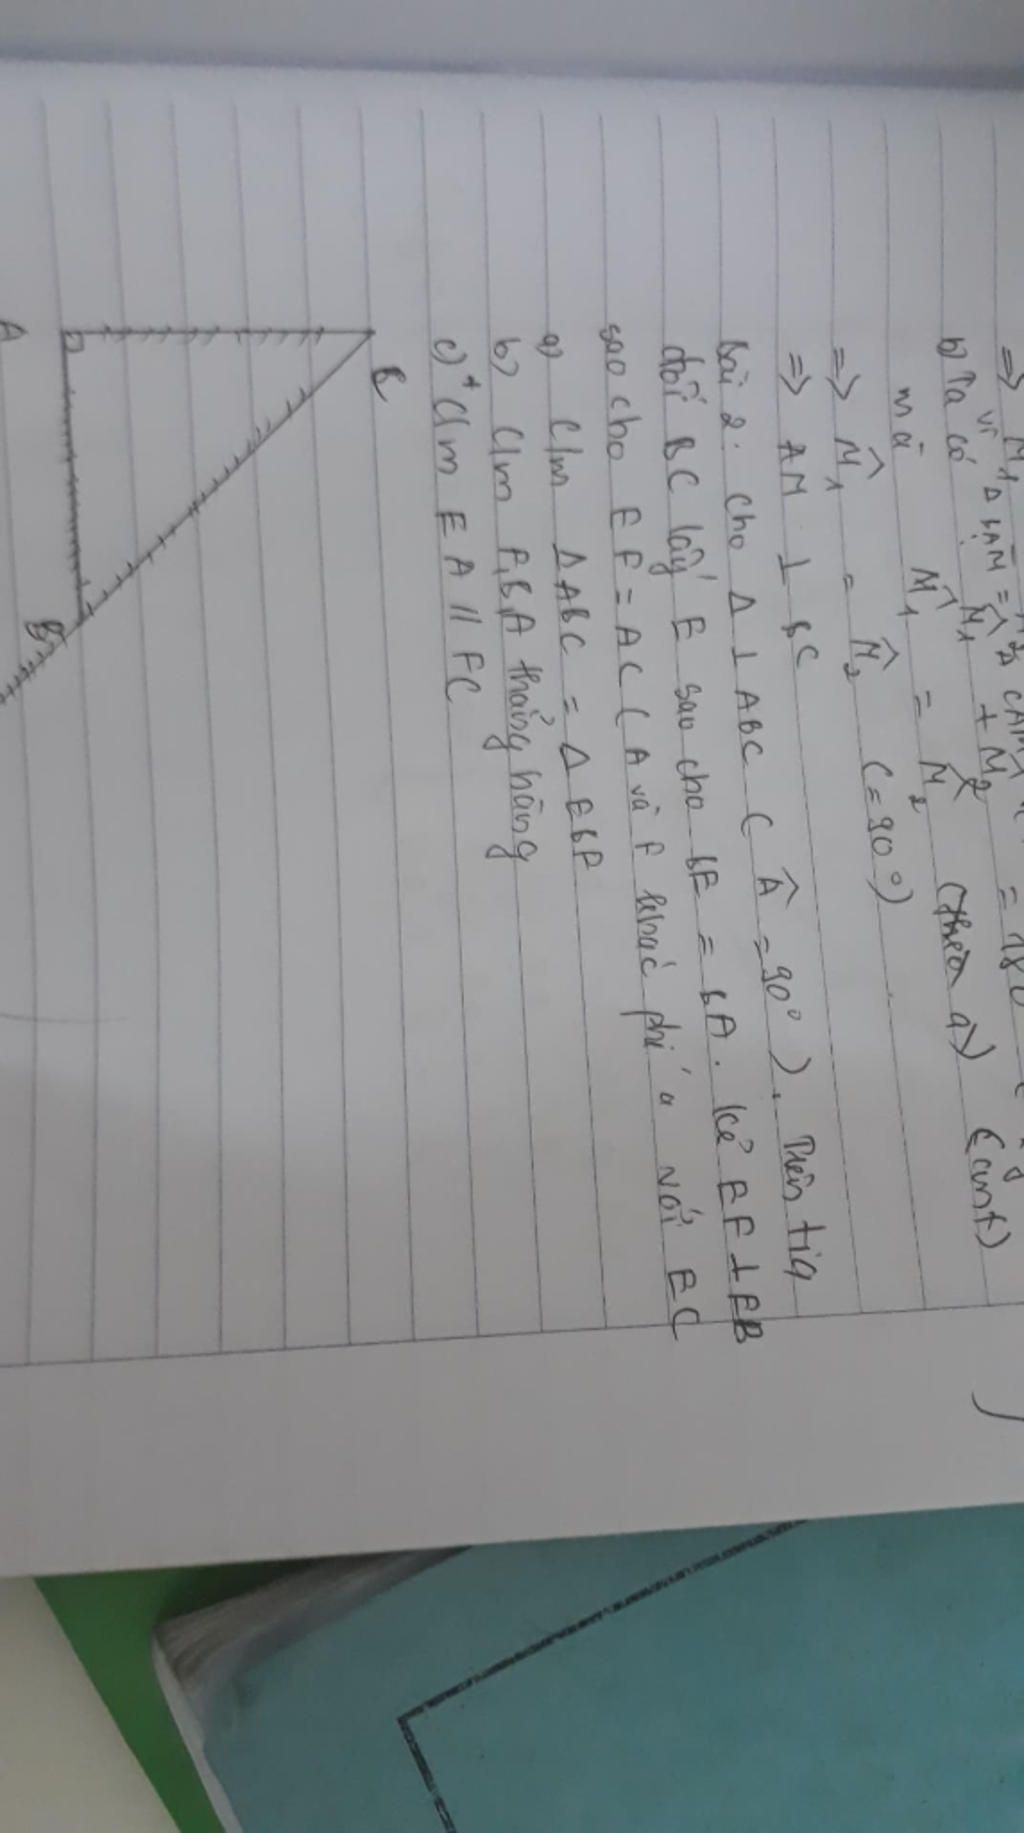 => M̂1 =
vì Δ BAM = Δ CAM
b) Ta có M̂1 + M̂2 = 180
mà M̂1 = M̂2 (theo a) (cmt)
=> M̂1 = M̂2 (= 90°)
=> AM ⊥ BC
Bài 2: Cho Δ ⊥ ABC ( Â = 90° ). Trên tia
đối BC lấy E sao cho BE = BA. Kẻ EF ⊥ EB
sao cho EF = AC ( A và F khác phía với BC
a) C/m Δ ABC = Δ EBF
b) C/m F, B, A thẳng hàng
c) + C/m EA // FC
B
A